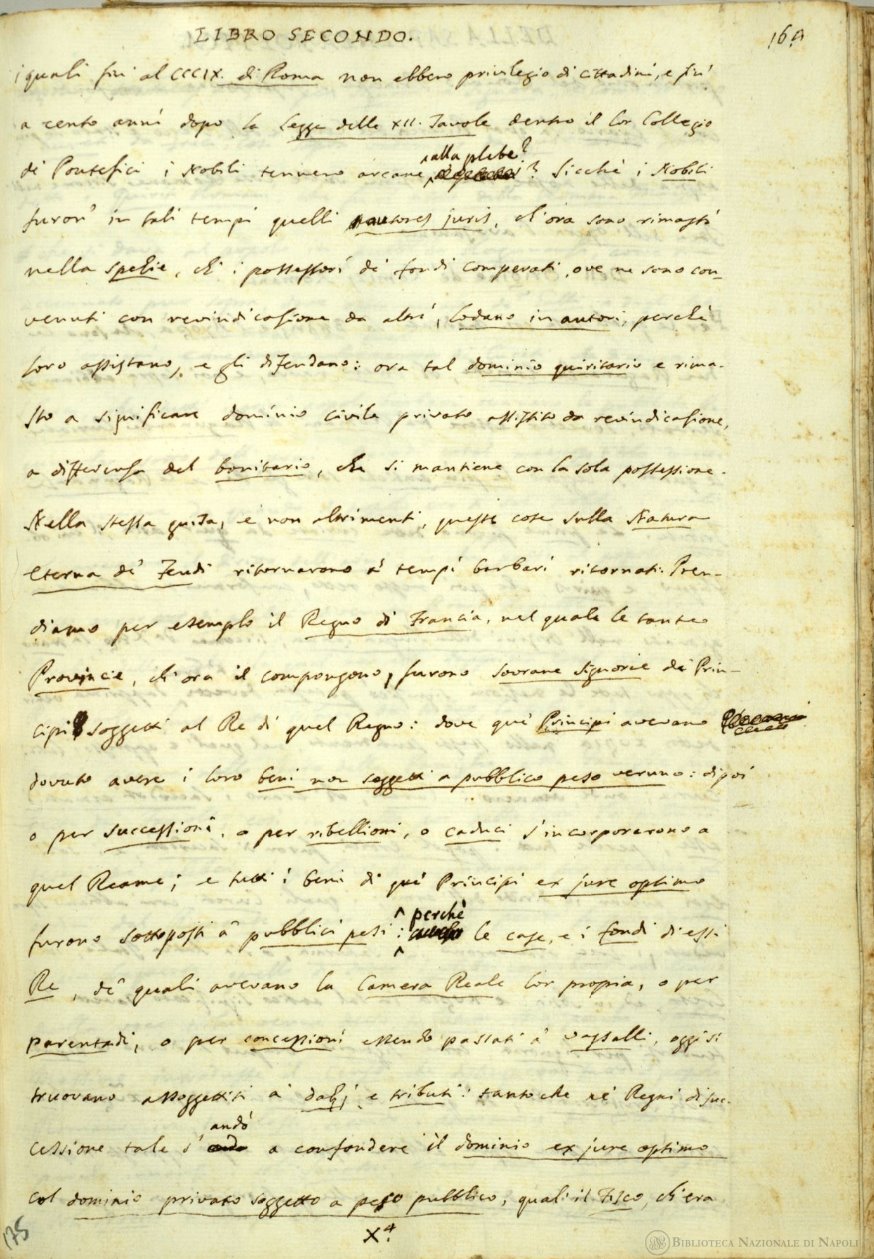 LIBRO SECONDO. 169
i quali fin al CCCIX. di Roma non ebbero privilegio di cittadini, e fin'
a cento anni dopo la Legge delle XII. Tavole dentro il lor Collegio
de' Pontefici i Nobili tennero arcane alla plebe? Sicchè i Nobili
furon' in tali tempi quelli autores juris, ch'ora sono rimasti
nella spezie, ch'i possessori de' fondi comperati, ove ne sono con-
venuti con revindicazione da altri, lodano in autori, perchè
loro assistano, e gli difendano: ora tal dominio quiritario è rima-
sto a significare dominio civile privato assistito da revindicazione,
a differenza del bonitario, che si mantiene con la sola possessione.
Nella stessa guisa, e non altrimenti, queste cose sulla Natura
eterna de' Feudi ritornarono a' tempi barbari ritornati. Pren-
diamo per esemplo il Regno di Francia, nel quale le tante
Provincie, ch'ora il compongono, furono sovrane Signorie de' Prin-
cipi soggetti al Re di quel Regno: dove que' Principi avevano
dovuto avere i loro beni non soggetti a pubblico peso veruno: dipoi
o per successioni, o per ribellioni, o caduci s'incorporarono a
quel Reame; e tutti i beni di que' Principi ex jure optimo
furono sottoposti a' pubblici pesi: perchè le case, e i fondi di essi
Re, de' quali avevano la Camera Reale lor propia, o per
parentadi, o per concessioni essendo passati a' vassalli, oggi si
truovano assoggettiti a' dazj, e tributi: tanto che ne' Regni di suc-
cessione tale s' andò a confondere il dominio ex jure optimo
col dominio privato soggetto a peso pubblico, quali il Fisco, ch'era
X4.
175
BIBLIOTECA NAZIONALE DI NAPOLI